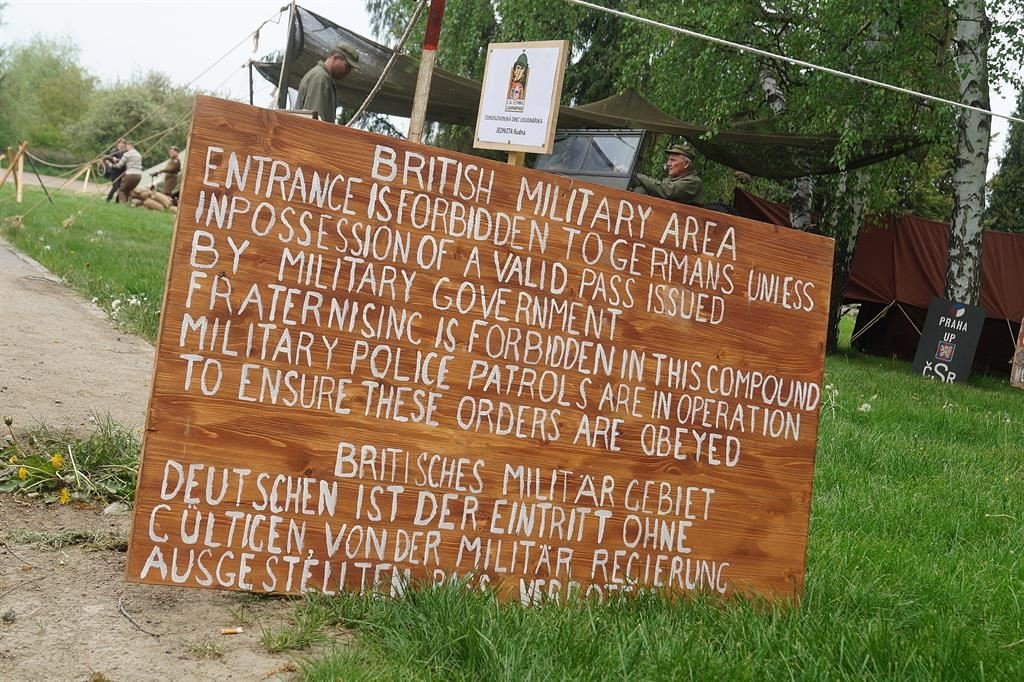 BRITISH MILITARY AREA
ENTRANCE IS FORBIDDEN TO GERMANS UNLESS
INPOSSESSION OF A VALID PASS ISSUED
BY MILITARY GOVERNMENT
FRATERNISINC IS FORBIDDEN IN THIS COMPOUND
MILITARY POLICE PATROLS ARE IN OPERATION
TO ENSURE THESE ORDERS ARE OBEYED
BRITISCHES MILITÄR GEBIET
DEUTSCHEN IST DER EINTRITT OHNE
CÜLTICEN, VON DER MILITÄR REGIERUNG
AUSGESTELLTEN
ČESKOSLOVENSKÁ OBEC LEGIONÁŘSKÁ
JEDNOTA Rudná
PRAHA
UP
ČSR